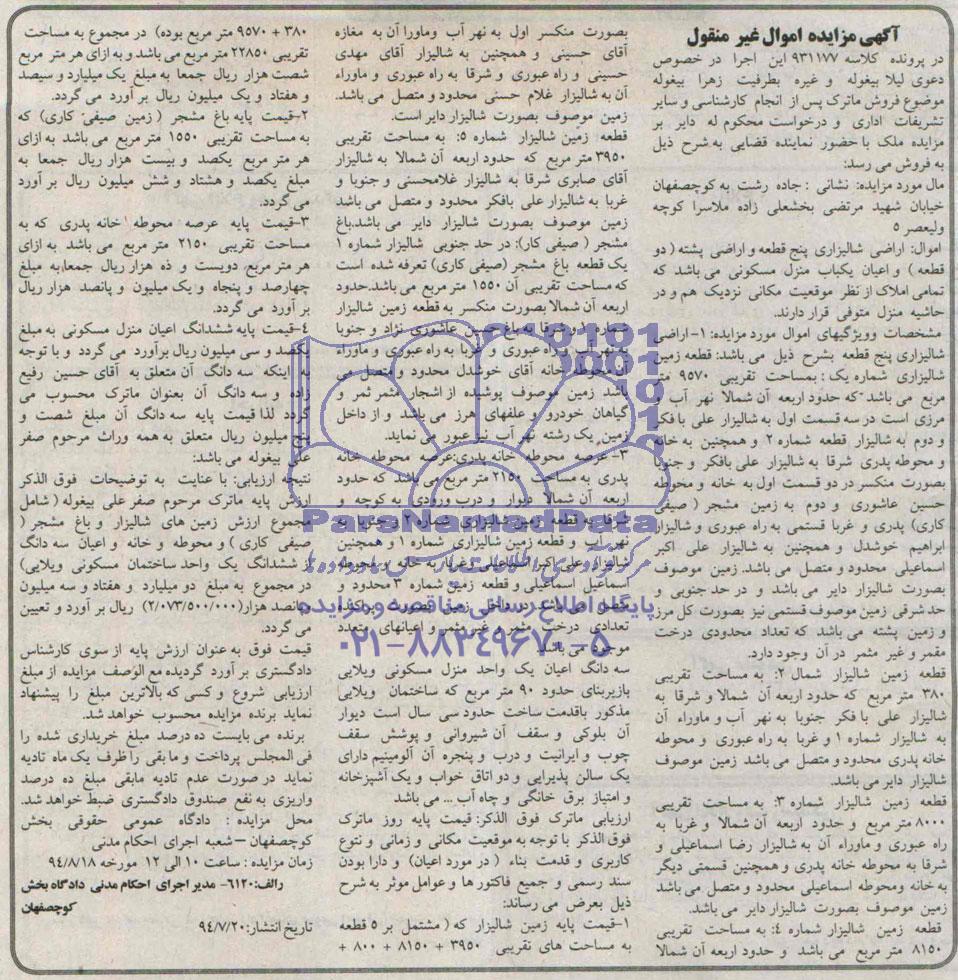 آگهی مزایده اموال غیر منقول
در پرونده کلاسه ۹۳۱۱۷۷ این اجرا در خصوص
دعوی لیلا بیغوله و غیره بطرفیت زهرا بیغوله
موضوع فروش ماترک پس از انجام کارشناسی و سایر
تشریفات اداری و درخواست محکوم له دایر بر
مزایده ملک با حضور نماینده قضایی به شرح ذیل
به فروش می رسد:
مال مورد مزایده: نشانی : جاده رشت به کوچصفهان
خیابان شهید مرتضی بخشعلی زاده ملاسرا کوچه
ولیعصر ۵
اموال: اراضی شالیزاری پنج قطعه و اراضی پشته ( دو
قطعه ) و اعیان یکباب منزل مسکونی می باشد که
تمامی املاک از نظر موقعیت مکانی نزدیک هم و در
حاشیه منزل متوفی قرار دارند.
مشخصات وویژگیهای اموال مورد مزایده: ۱- اراضی
شالیزاری پنج قطعه بشرح ذیل می باشد: قطعه زمین
شالیزاری شماره یک : بمساحت تقریبی ۹۵۷۰ متر
مربع می باشد که حدود اربعه آن شمالا نهر آب و
مرزی است در سه قسمت اول به شالیزار علی با فکر
و دوم به شالیزار قطعه شماره ۲ و همچنین به خانه
و محوطه پدری شرقا به شالیزار علی بافکر و جنوبا
بصورت منکسر در دو قسمت اول به خانه و محوطه
حسین عاشوری و دوم به زمین مشجر ( صیفی
کاری) پدری و غربا قستمی به راه عبوری و شالیزار
ابراهیم خوشدل و همچنین به شالیزار علی اکبر
اسماعیلی محدود و متصل می باشد. زمین موصوف
بصورت شالیزار دایر می باشد و در حد جنوبی و
حد شرقی زمین موصوف قستمی نیز بصورت کل مرز
و زمین پشته می باشد که تعداد محدودی درخت
مقمر و غیر مثمر در آن وجود دارد.
قطعه زمین شالیزار شمال ۲: به مساحت تقریبی
۳۸۰ متر مربع که حدود اربعه آن شمالا و شرقا به
شالیزار علی با فکر جنوبا به نهر آب و ماوراء آن
به شالیزار شماره ۱ و غربا به راه عبوری و محوطه
خانه پدری محدود و متصل می باشد زمین موصوف
شالیزار دایر می باشد.
قطعه زمین شالیزار شماره ۳: به مساحت تقریبی
۸۰۰۰ متر مربع و حدود اربعه آن شمالا و غربا به
راه عبوری و ماوراء آن به شالیزار رضا اسماعیلی و
شرقا به محوطه خانه پدری و همچنین قسمتی دیگر
به خانه ومحوطه اسماعیلی محدود و متصل می باشد
زمین موصوف بصورت شالیزار دایر می باشد.
قطعه زمین شالیزار شماره ٤: به مساحت تقریبی
۸۱۵۰ متر مربع می باشد و حدود اربعه آن شمالا
بصورت منکسر اول به نهر آب وماورا آن به مغازه
آقای حسینی و همچنین به شالیزار آقای مهدی
حسینی و راه عبوری و شرقا به راه عبوری و ماوراء
آن به شالیزار غلام حسنی محدود و متصل می باشد.
زمین موصوف بصورت شالیزار دایر است.
قطعه زمین شالیزار شماره ۵: به مساحت تقریبی
۳۹۵۰ متر مربع که حدود اربعه آن شمالا به شالیزار
آقای صابری شرقا به شالیزار غلامحسنی و جنوبا و
غربا به شالیزار علی بافکر محدود و متصل می باشد
زمین موصوف بصورت شالیزار دایر می باشد.باغ
مشجر ( صیفی کار): در حد جنوبی شالیزار شماره ۱
یک قطعه باغ مشجر (صیفی کاری) تعرفه شده است
که مساحت تقریبی آن ۱۵۵۰ متر مربع می باشد.حدود
اربعه آن شمالا بصورت منکسر به قطعه زمین شالیزار
شماره ۱ و شرقا به باغ حسین عاشوری نژاد و جنوبا
به نهر آب و راه عبوری و غربا به راه عبوری و ماوراء
آن محوطه خانه آقای خوشدل محدود و متصل می
باشد زمین موصوف پوشیده از اشجار مثمر ثمر و
گیاهان خودرو و علفهای هرز می باشد و از داخل
زمین یک رشته نهر آب نیز عبور می نماید.
۳- عرصه محوطه خانه پدری:عرصه محوطه خانه
پدری به مساحت ۲۱۵۰ متر مربع می باشد که حدود
اربعه آن شمالا دیوار و درب ورودی به کوچه و
شرقا به قطعه زمین شالیزاری شماره ۲ و جنوبا به
نهر آب و قطعه زمین شالیزاری شماره ۱ و همچنین
شالیزار علی اکبر اسماعیلی و غربا به خانه و محوطه
اسماعیل اسماعیلی و قطعه زمین شماره ۳ محدود و
متصل می باشد در داخل زمین بصورت پراکنده
تعدادی درخت مثمر و غیر مثمر و اعیانهای متعدد
موجود می باشد
سه دانگ اعیان یک واحد منزل مسکونی ویلایی
بازیربنای حدود ۹۰ متر مربع که ساختمان ویلایی
مذکور باقدمت ساخت حدود سی سال است دیوار
آن بلوکی و سقف آن شیروانی و پوشش سقف
چوب و ایرانیت و درب و پنجره آن آلومینیم دارای
یک سالن پذیرایی و دو اتاق خواب و یک آشپزخانه
و امتیاز برق خانگی و چاه آب ... می باشد
ارزیابی ماترک فوق الذکر: قیمت پایه روز ماترک
فوق الذکر با توجه به موقعیت مکانی و زمانی و نتوع
کاربری و قدمت بناء ( در مورد اعیان) و دارا بودن
سند رسمی و جمیع فاکتور ها و عوامل موثر به شرح
ذیل بعرض می رساند:
۱-قیمت پایه زمین شالیزار که ( مشتمل بر ۵ قطعه
به مساحت های تقریبی ۳۹۵۰ + ۸۱۵۰ + ۸۰۰ +
۳۸۰ + ۹۵۷۰ متر مربع بوده) در مجموع به مساحت
تقریبی ۲۲۸۵۰ متر مربع می باشد و به ازای هر متر مربع
شصت هزار ریال جمعا به مبلغ یک میلیارد و سیصد
و هفتاد و یک میلیون ریال بر آورد می گردد.
۲-قیمت پایه باغ مشجر ( زمین صیفی کاری) که
به مساحت تقریبی ۱۵۵۰ متر مربع می باشد به ازای
هر متر مربع یکصد و بیست هزار ریال جمعا به
مبلغ یکصد و هشتاد و شش میلیون ریال بر آورد
می گردد.
۳-قیمت پایه عرصه محوطه خانه پدری که به
مساحت تقریبی ۲۱۵۰ متر مربع می باشد به ازای
هر متر مربع، دویست و ده هزار ریال جمعابه مبلغ
چهارصد و پنجاه و یک میلیون و پانصد هزار ریال
بر آورد می گردد.
٤-قیمت پایه ششدانگ اعیان منزل مسکونی به مبلغ
یکصد و سی میلیون ریال برآورد می گردد و با توجه
به اینکه سه دانگ آن متعلق به آقای حسین رفیع
زاده و سه دانگ آن بعنوان ماترک محسوب می
گردد لذا قیمت پایه سه دانگ آن مبلغ شصت و
پنج میلیون ریال متعلق به همه وراث مرحوم صفر
علی بیغوله می باشد:
نتیجه ارزیابی: با عنایت به توضیحات فوق الذکر
ارزش پایه ماترک مرحوم صفر علی بیغوله ( شامل
مجموع ارزش زمین های شالیزار و باغ مشجر (
صیفی کاری ) و محوطه و خانه و اعیان سه دانگ
از ششدانگ یک واحد ساختمان مسکونی ویلایی)
در مجموع به مبلغ دو میلیارد و هفتاد و سه میلیون
پانصد هزار(۲/۰۷۳/۵۰۰/۰۰۰) ریال بر آورد و تعیین
می گردد.
قیمت فوق به عنوان ارزش پایه از سوی کارشناس
دادگستری بر آورد گردیده مع الوصف مزایده از مبلغ
ارزیابی شروع و کسی که بالاترین مبلغ را پیشنهاد
نماید برنده مزایده محسوب خواهد شد.
برنده می بایست ده درصد مبلغ خریداری شده را
فی المجلس پرداخت و ما بقی را ظرف یک ماه تادیه
نماید در صورت عدم تادیه مابقی مبلغ ده درصد
واریزی به نفع صندوق دادگستری ضبط خواهد شد.
محل مزایده : دادگاه عمومی حقوقی بخش
کوچصفهان – شعبه اجرای احکام مدنی
زمان مزایده : ساعت ۱۰ الی ۱۲ مورخه ۹٤/۸/۱۸
رالف:۶۱۲۰- مدیر اجرای احکام مدنی دادگاه بخش
کوچصفهان
تاریخ انتشار: ۹٤/۷/۲۰
ParsNamadData
پایگاه اطلاع رسانی مناقصه و مزایده
۰۲۱-۸۸۳۴۹۶۷۰-۵